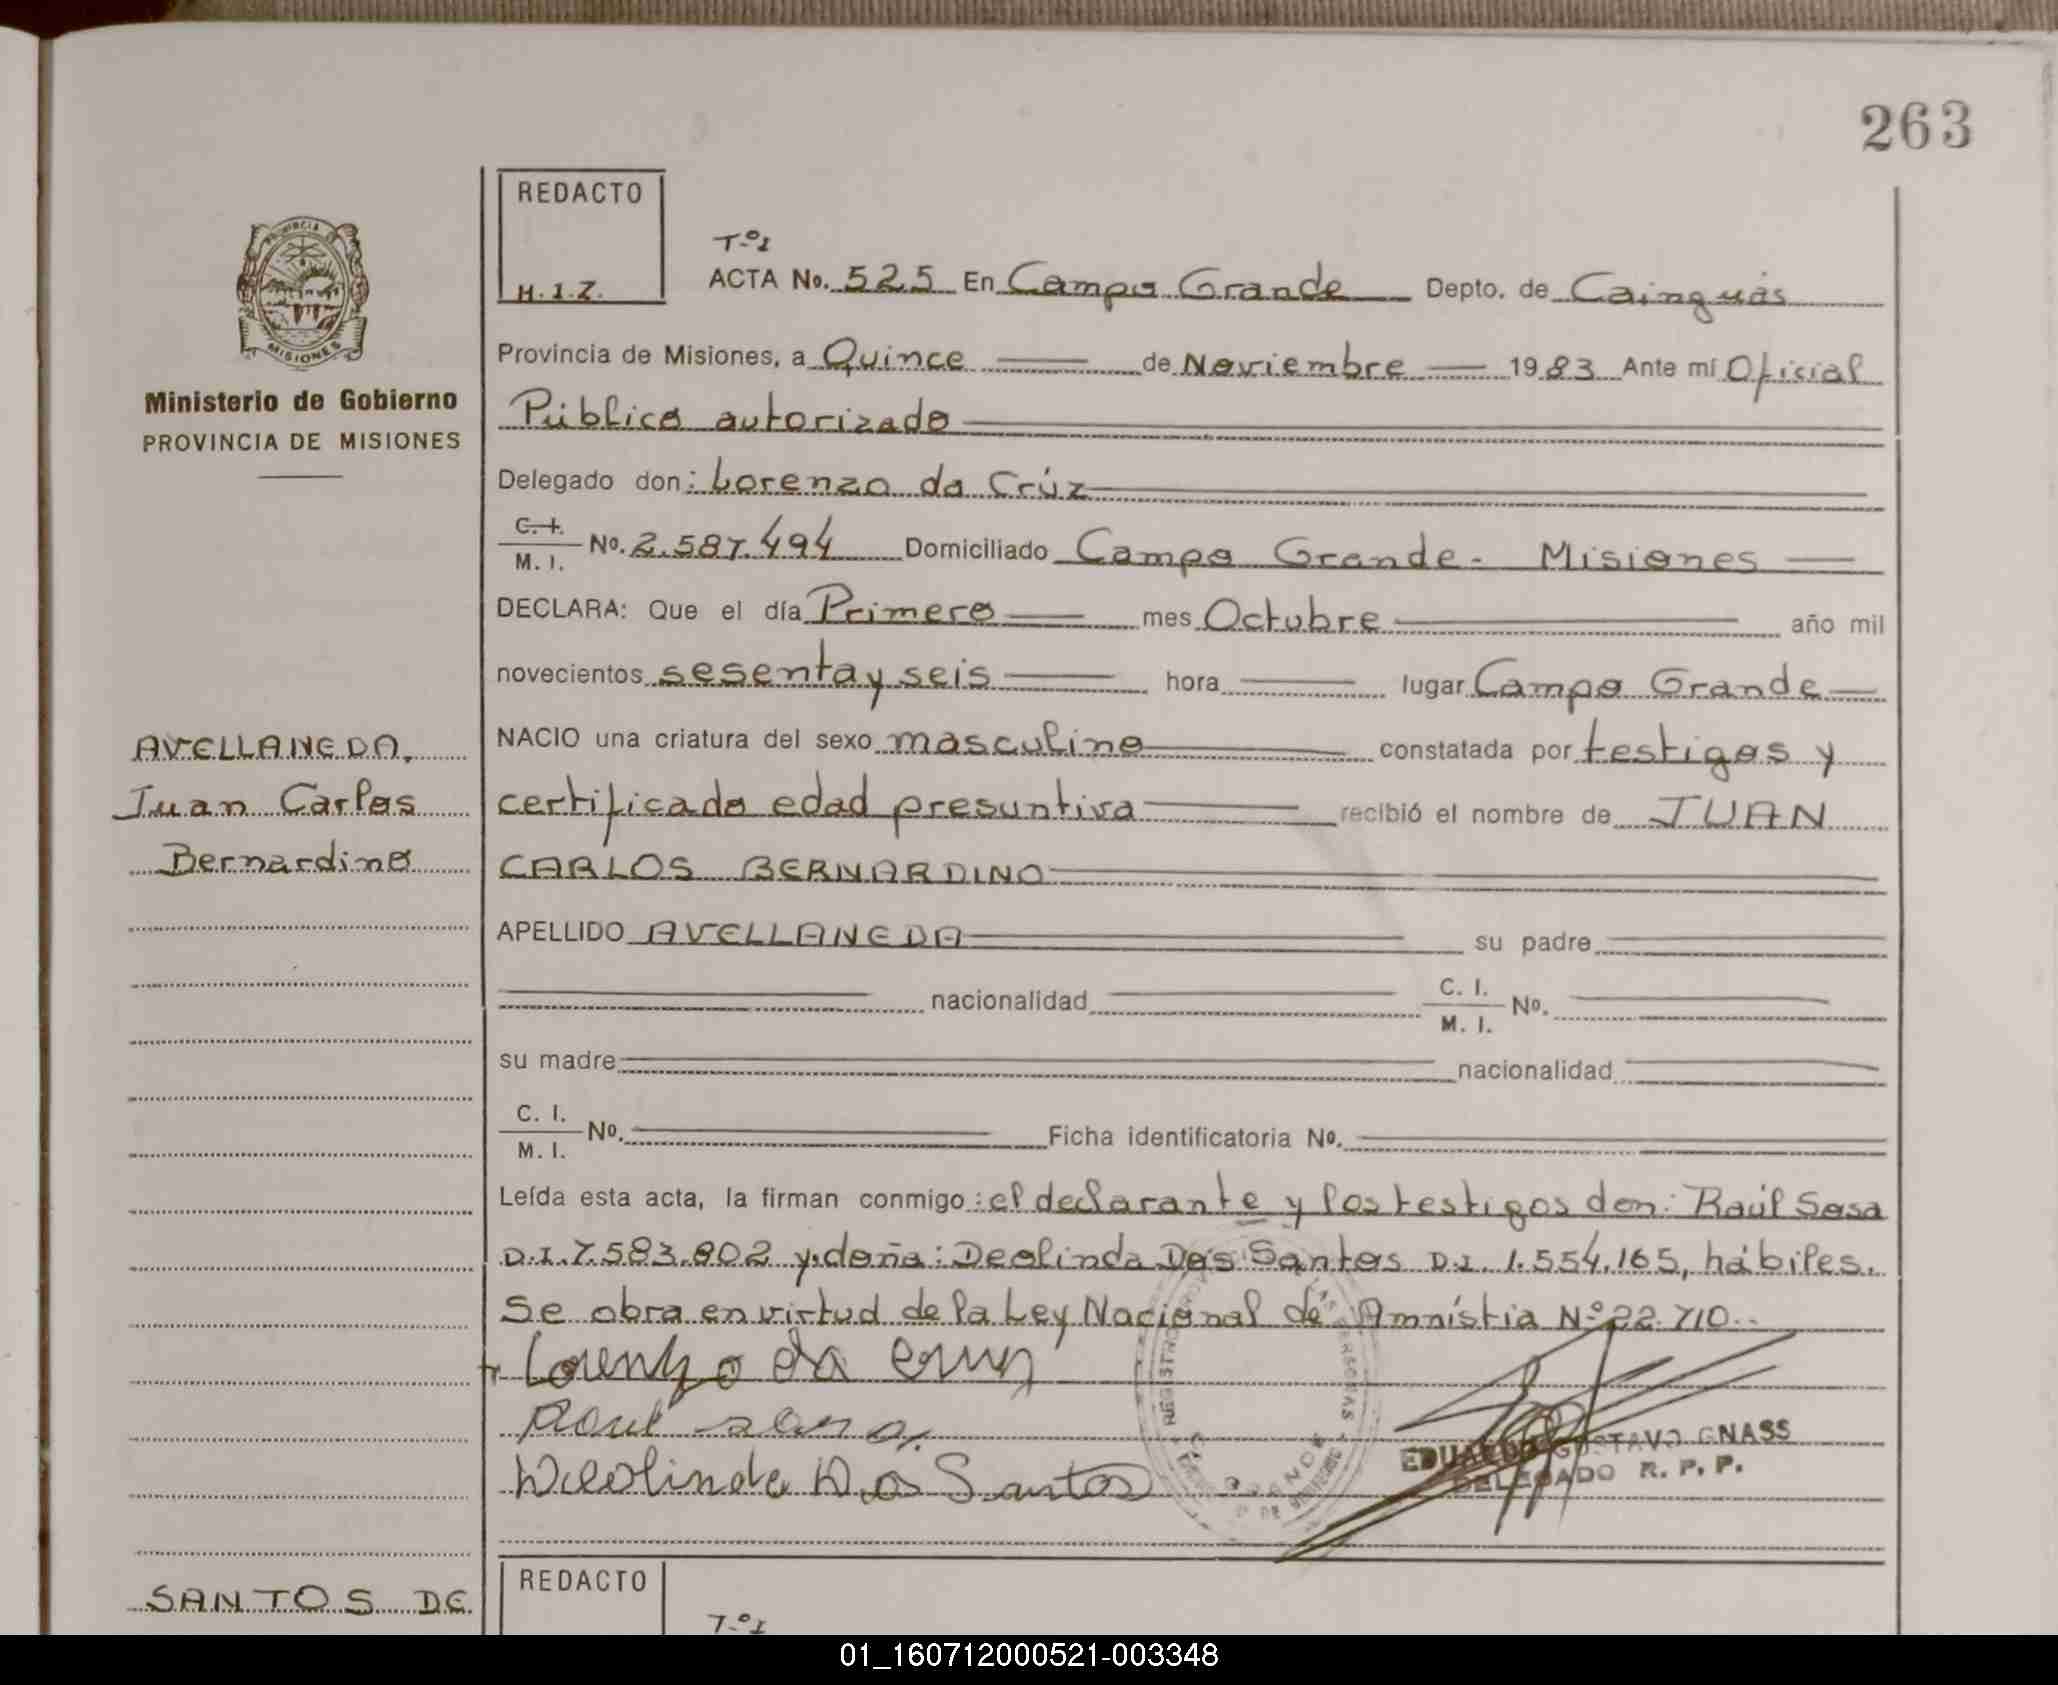 263
REDACTO
H.I.Z.
T-º1
ACTA No. 525 En Campo Grande Depto. de Cainguás
Provincia de Misiones, a Quince de Noviembre 1983 Ante mí Oficial
Público autorizado
Delegado don: Lorenzo da Crúz
C.I. M. I. No. 2.587.494 Domiciliado Campo Grande - Misiones
DECLARA: Que el día Primero mes Octubre año mil
novecientos sesenta y seis hora lugar Campo Grande
NACIO una criatura del sexo masculino constatada por testigos y
certificado edad presuntiva recibió el nombre de JUAN
CARLOS BERNARDINO
APELLIDO AVELLANEDA su padre
nacionalidad C. I. M. I. No.
su madre nacionalidad
C. I. M. I. No. Ficha identificatoria No.
Leída esta acta, la firman conmigo: el declarante y los testigos don: Raúl Sosa
D.I. 7.583.802 y doña: Deolinda Dos Santos D.I. 1.554.165, hábiles.
Se obra en virtud de la Ley Nacional de Amnístia Nº 22.710..
Lorenzo da Cruz
Raul Sosa
Deolinda Dos Santos
EDUARDO GUSTAVO GNASS
DELEGADO R. P. P.
PROVINCIA DE
MISIONES
Ministerio de Gobierno
PROVINCIA DE MISIONES
AVELLANEDA,
Juan Carlos
Bernardino
SANTOS DE
REDACTO
T-º1
01_160712000521-003348